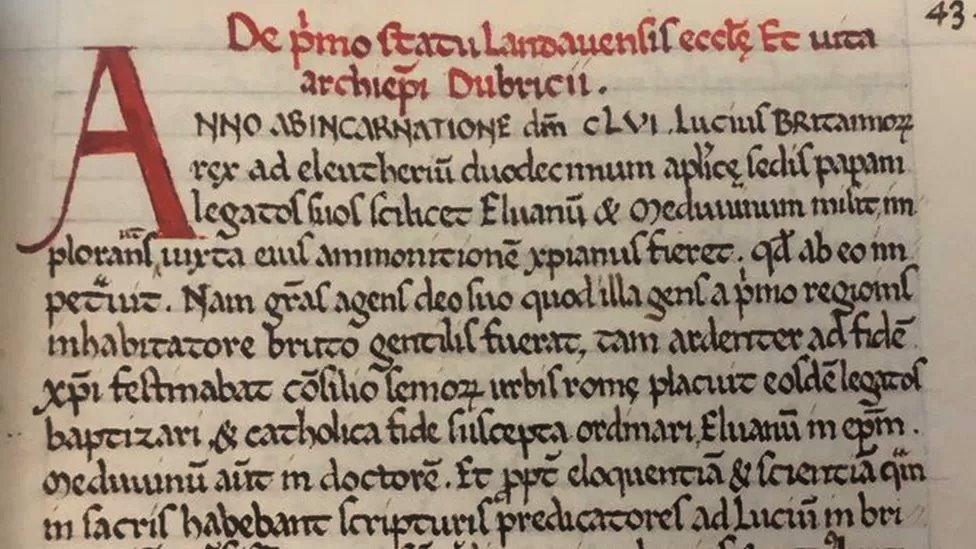 43
De p̄mo statu Landauensis eccłę Et uita
archiep̄i Dubricii.
ANNO AB INCARNATIONE dm̄ CLVI. Lucius BRitannoꝝ
rex ad eleutheriū duodecimum aplicę sedis papam
legatos suos scilicet Eluanū & Meduuinum misit, im
plorans, ut iuxta eius ammonitionē xpianus fieret. qd̄ ab eo im
petᵃuit. Nam grās agens deo suo quod illa gens a p̄mo regionis
inhabitatore bruto gentilis fuerat, tam ardenter ad fidē
xp̄i festinabat cōsilio senioꝝ urbis romę placuit eosdē legatos
baptizari, & catholica fide suscepta ordinari, Eluanū in ep̄m.
Meduuinū aūt in doctorē. Et ꝓpt̄ eloquentiā & scientiā quᵃm
in sacris habebant scripturis predicatores ad Luciū in bri